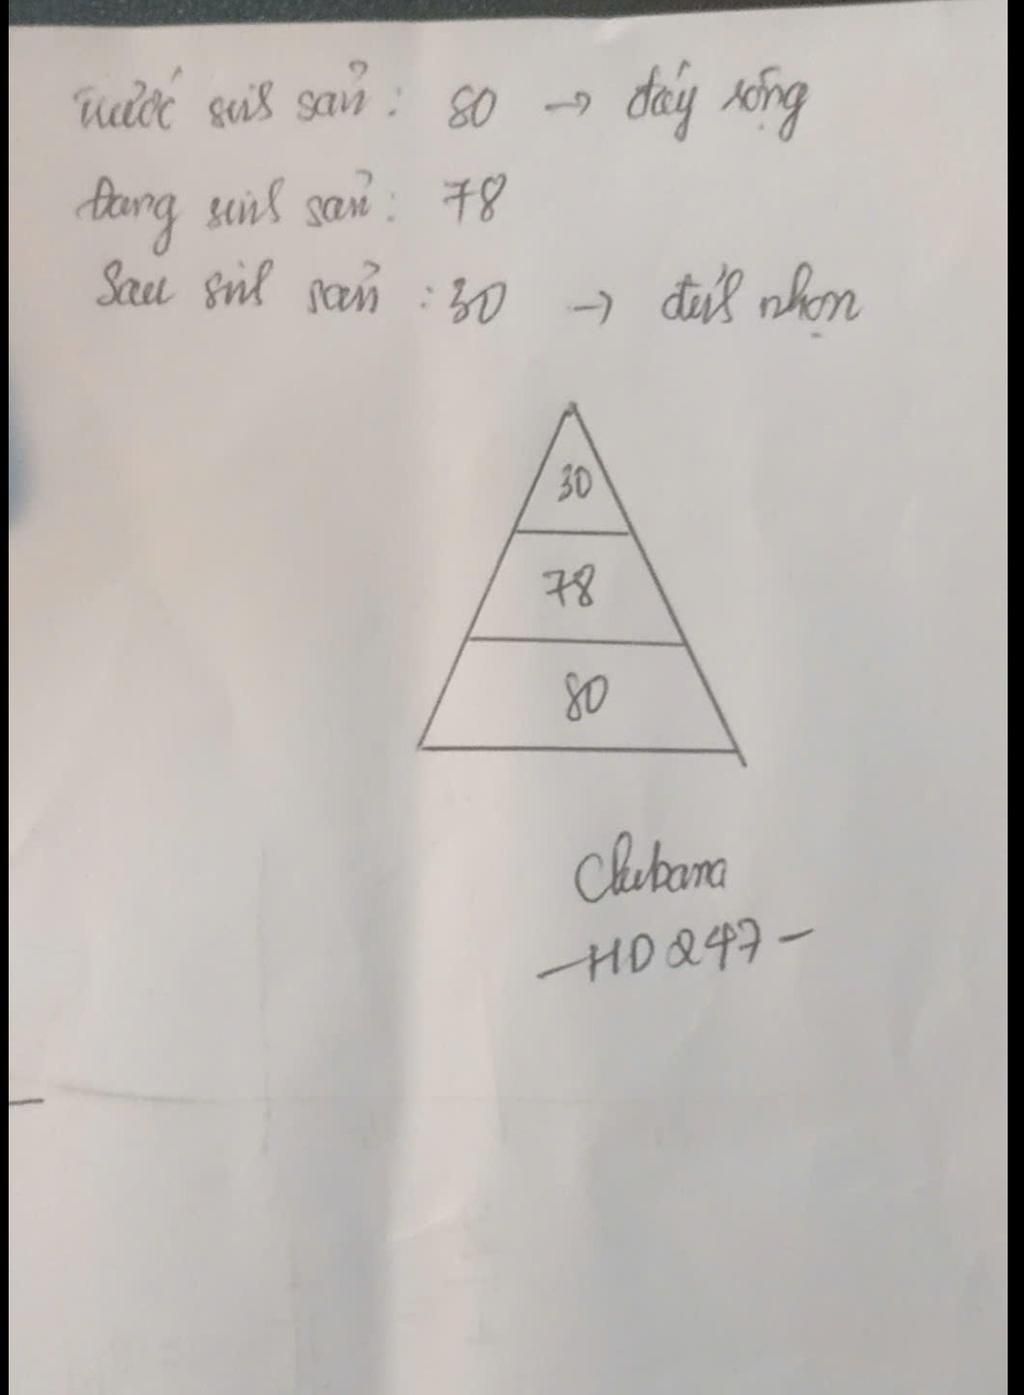 Trước sinh sản: 80 → đáy rộng
Đang sinh sản: 78
Sau sinh sản: 30 → đỉnh nhọn
30
78
80
Chubana
-HD247-